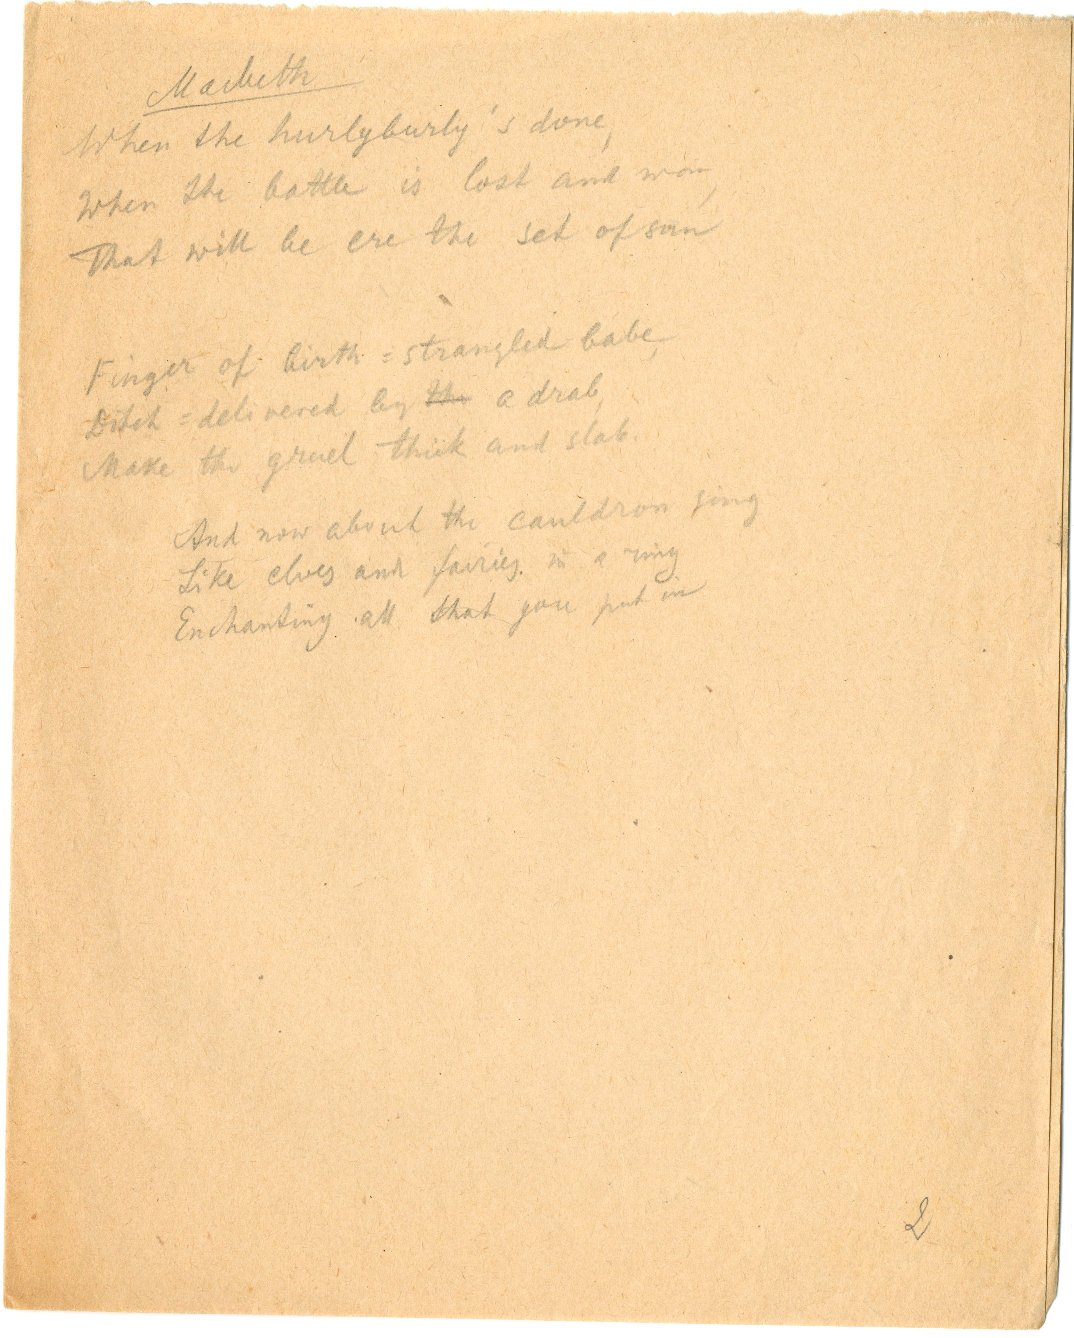 Macbeth
When the hurlyburly's done,
When the battle is lost and won,
That will be ere the set of sun
Finger of birth = strangled babe,
Ditch = delivered by the a drab,
Make the gruel thick and slab.
And now about the cauldron sing
Like elves and fairies in a ring
Enchanting all that you put in
2